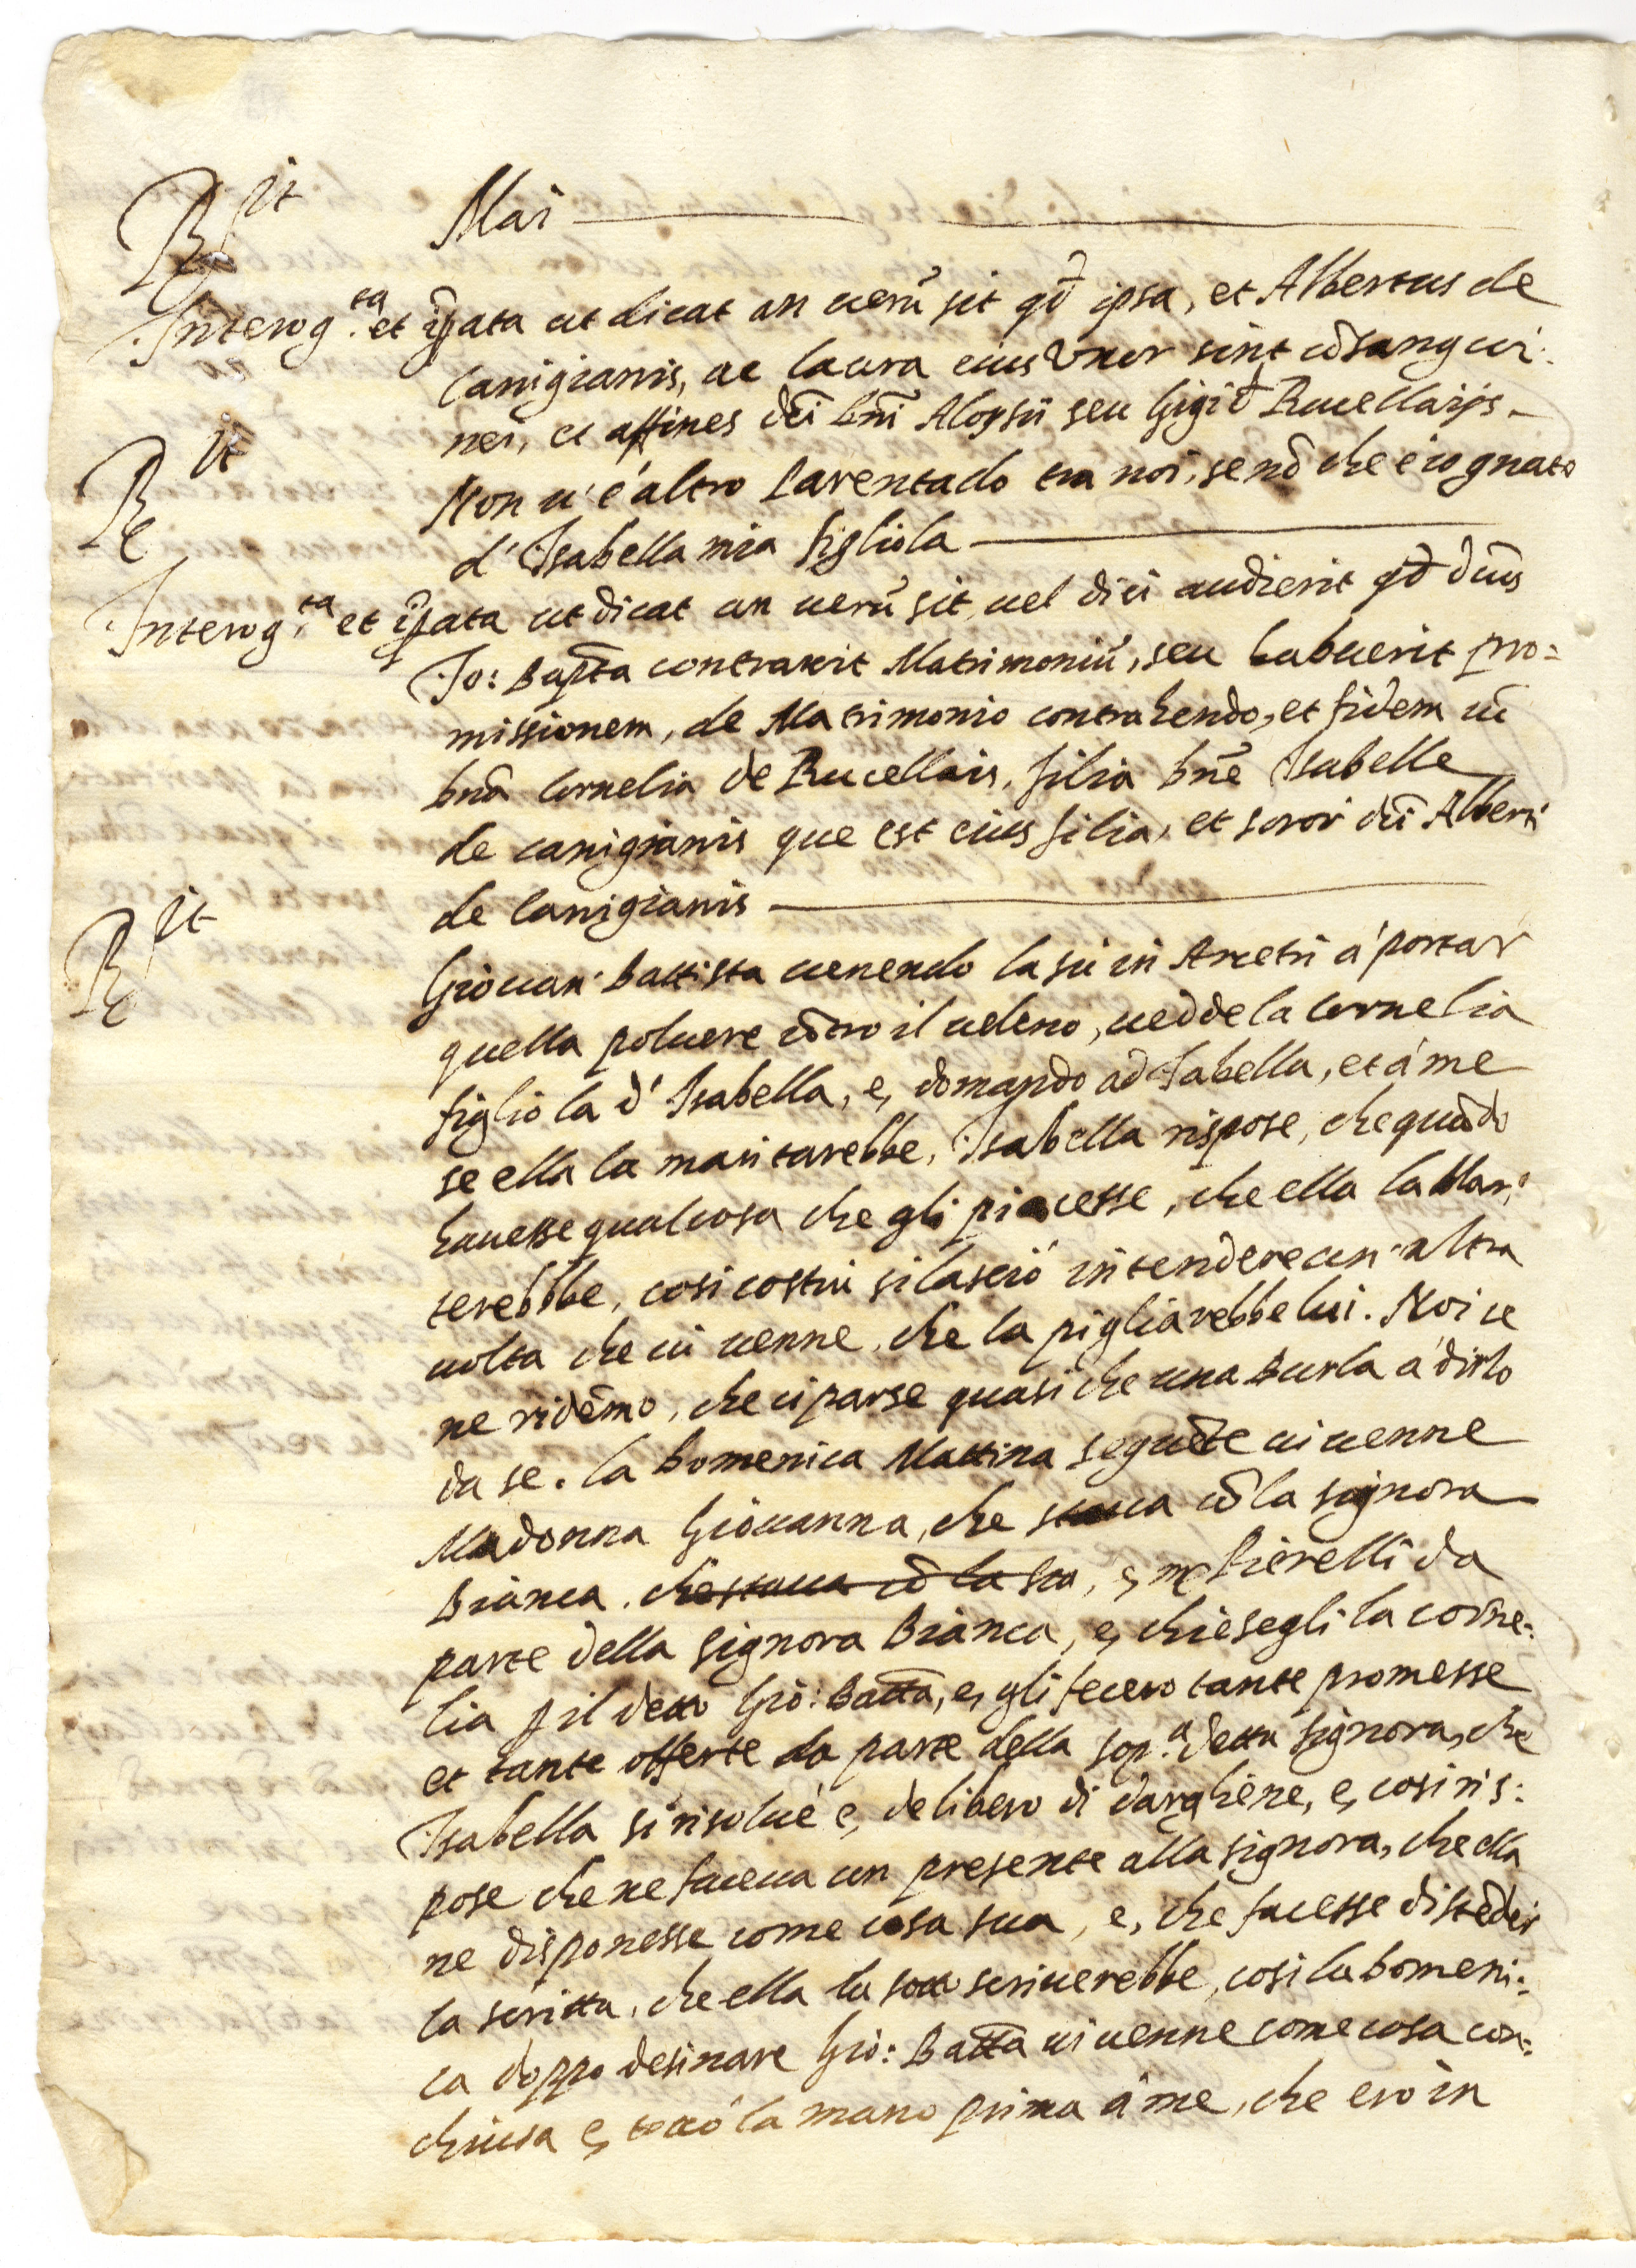 R.it Mai
Interog.ta et ip̄ata ut dicat an uerū sit qđ ipsa, et Albertus de
Canigianis, ac Laura eius Vxor sint cōsangui:
nei, et affines dc̄i dn̄i Aloysij seu Gigi đ Rucellaijs
R.it Non u'è altro Parentado tra noi, se nō che è cognato
d'Isabella mia figliola
Interog.ta et ip̄ata ut dicat an uerū sit, uel dici audierit qđ dn̄us
Jo: Bapta contraxit Matrimoniū, seu habuerit pro=
missionem, de Matrimonio contrahendo, et fidem cū
dn̄a Cornelia de Rucellais, filia dn̄e Isabelle
de canigianis que est eius filia, et soror dn̄i Alberti
de Canigianis
R.it Giouan' Battista uenendo la sù in Arcetri à portar
quella poluere cōtro il ueleno, uedde la Cornelia
figliola d'Isabella, e, domandò ad Isabella, et à me
se ella la maritarebbe, Isabella rispose, che quādo
hauesse qualcosa che gli piacesse, che ella la Mari
terebbbe, cosi costui si lasciò intendere un'altra
uolta che ui uenne, che la pigliarebbe lui. Noi ce
ne ridēmo, che ci parse quasi che una Burla à dirlo
da se. la Domenica Mattina seguēte ui uenne
Madonna Giouanna, che staua cō la signora
Bianca, che staua cō la Sra, e, mr Pierelli da
parte della Signora Bianca, e, chiesegli la Corne:
lia p il detto Gio: Batta, e, gli fecero tante promesse
et tante offerte da parte della sop.a detta signora, che
Isabella si risoluè e, deliberò di dargliene, e, cosi ris:
pose che ne faceua un presente alla signora, che ella
ne disponesse come cosa sua, e, che facesse distēder
la scritta, che ella la sottoscriuerebbe, cosi la Domeni:
ca doppo desinare Gio: Batta ui uenne come cosa con:
chiusa e, toccò la mano prima à me, che ero in